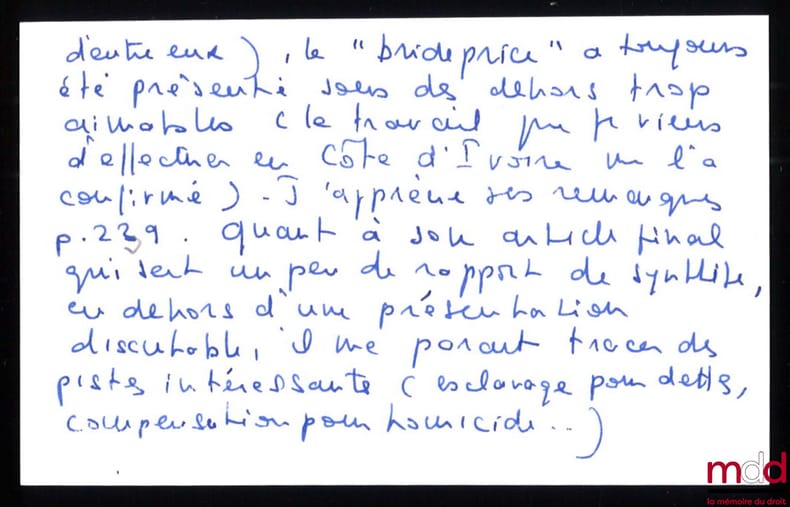 d'entre eux), le "brideprice" a toujours
été présenté sous des dehors trop
aimables (le travail que je viens
d'effectuer en Côte d'Ivoire me l'a
confirmé). J'apprécie ses remarques
p. 239. Quant à son article final
qui sert un peu de rapport de synthèse,
en dehors d'une présentation
discutable, il me paraît tracer des
pistes intéressantes (esclavage pour dettes,
compensation pour homicide...)
mdd
la mémoire du droit